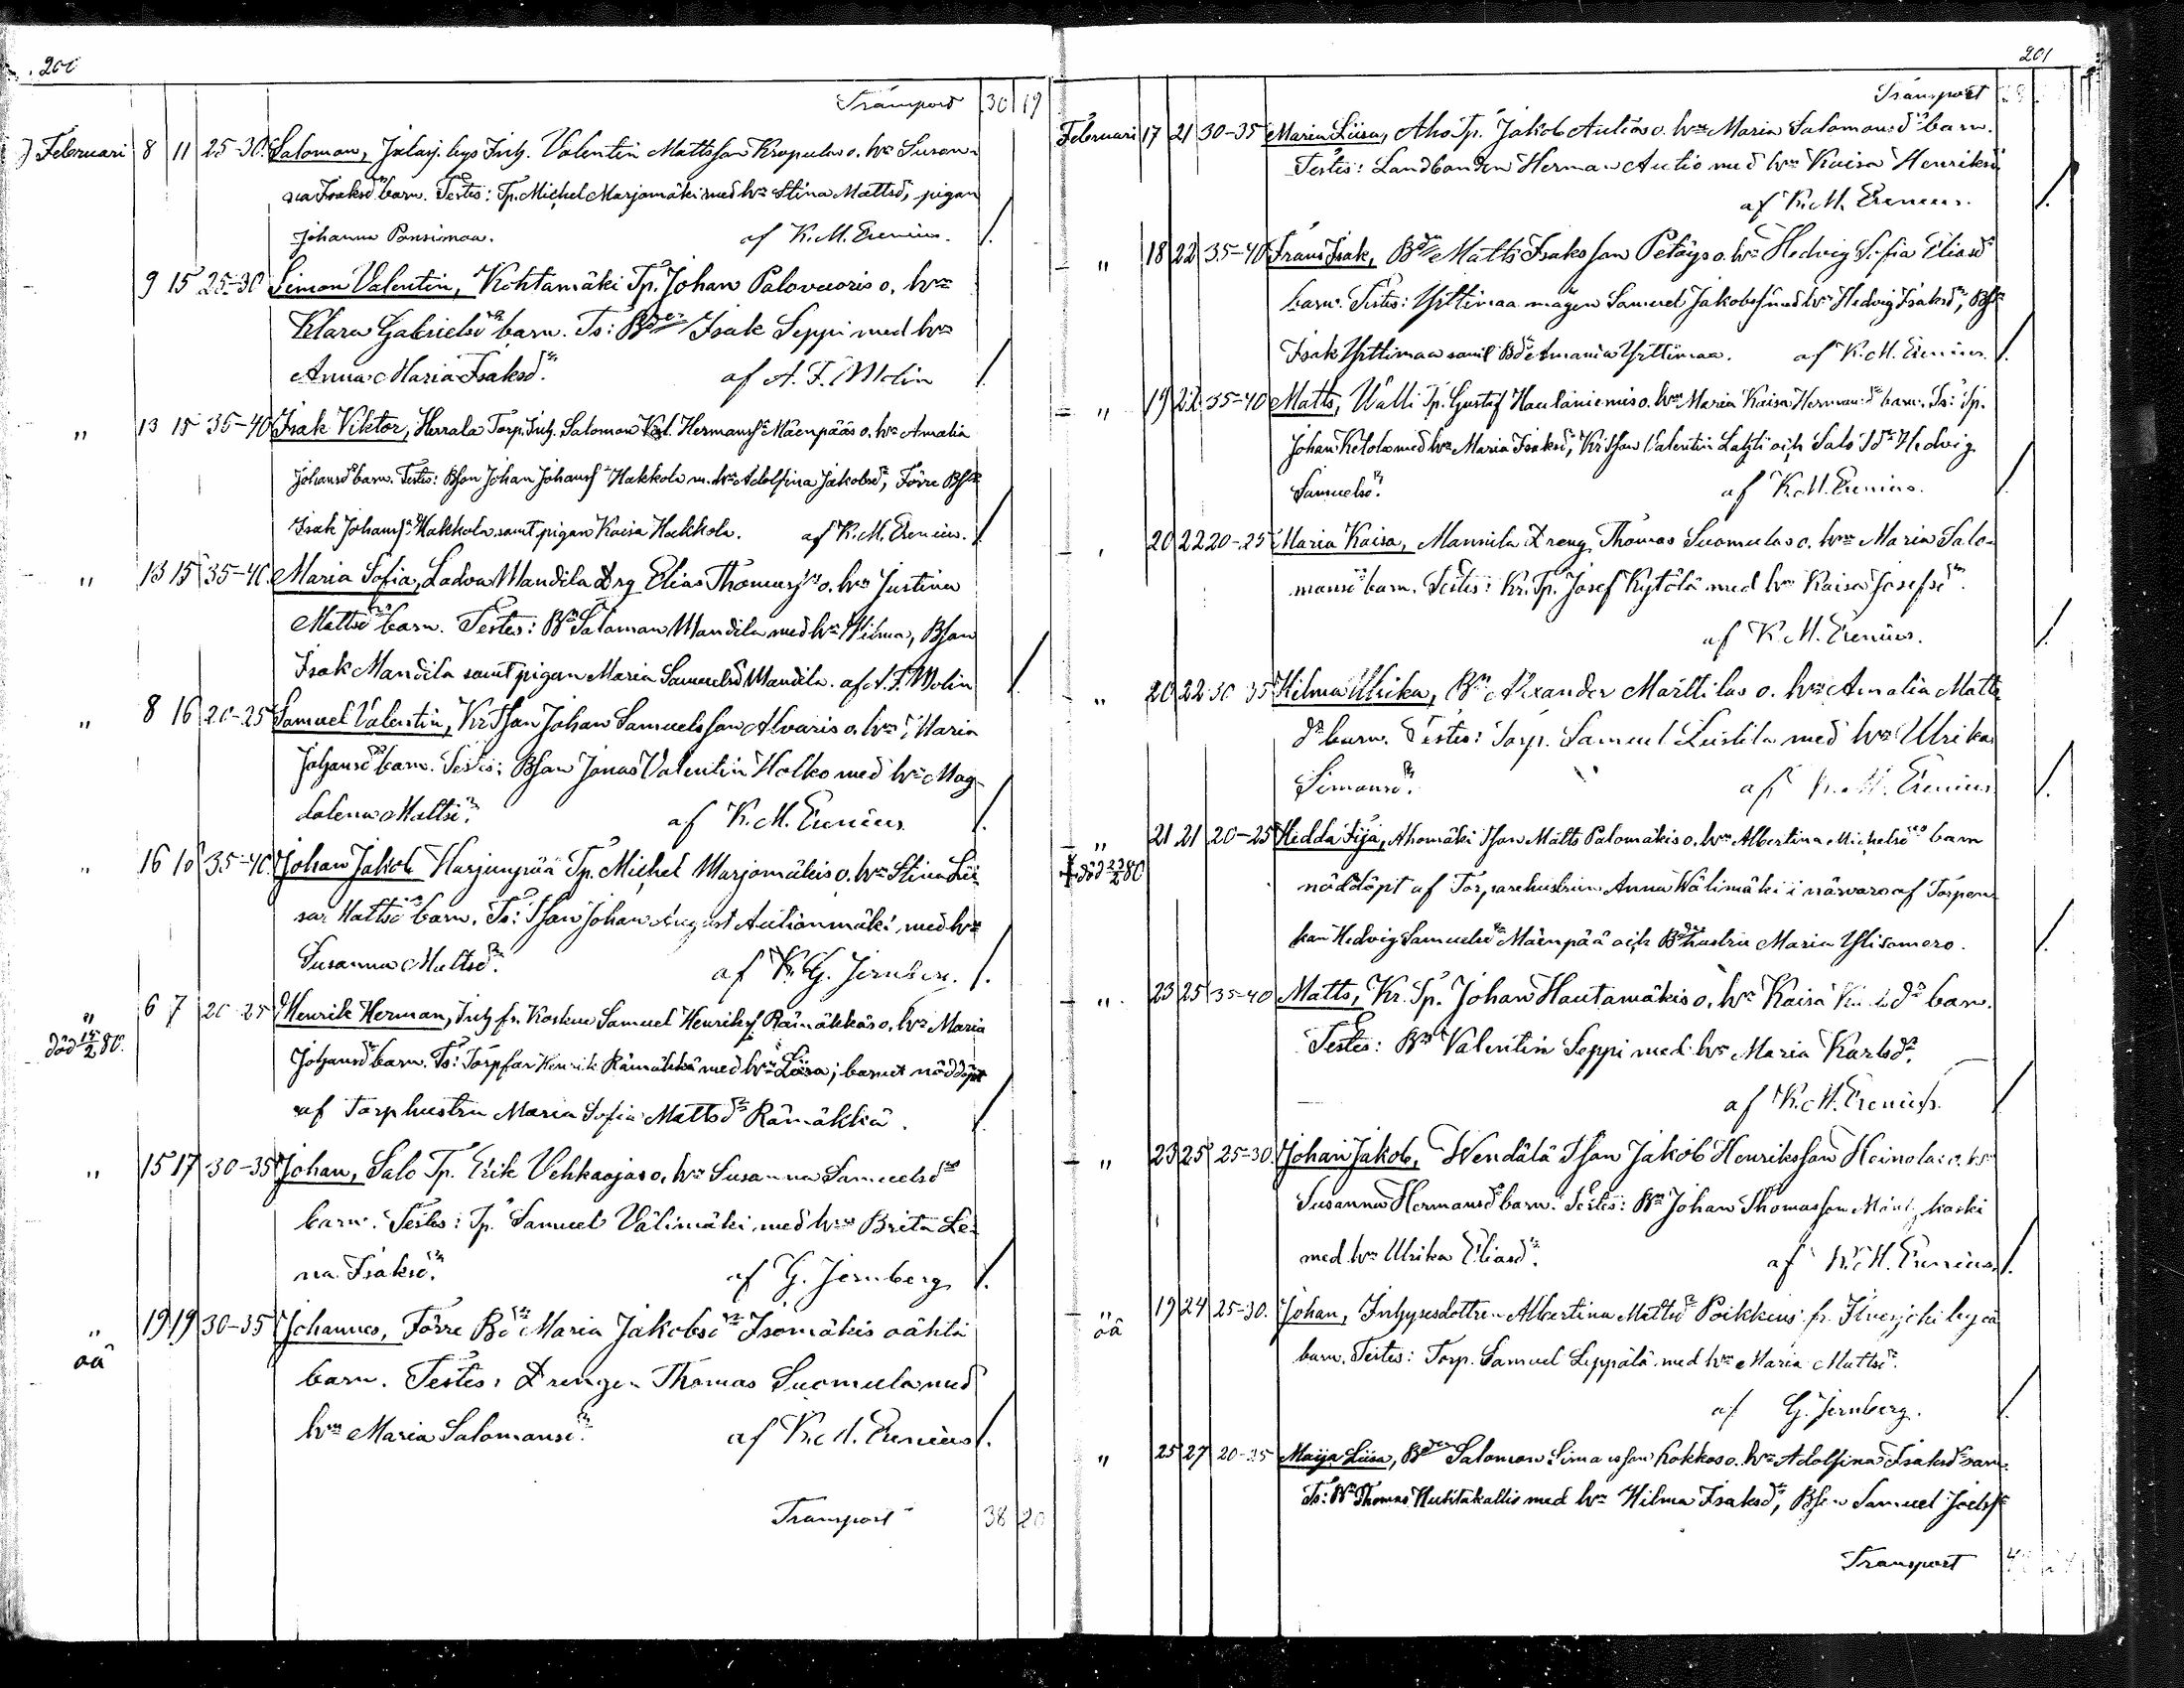 200
Transport 30 19
Februari 8 11 25-30 Salomon, Jalasj. bys Inh. Valentin Mattsson Kropulas o. hn Susan-
na Isaksdr barn. Testes: Tp. Michel Marjamäki med hn Stina Mattsd., pigan
Johanna Ponsimaa. af K. M. Erenius. /.
9 15 25-30 Simon Valentin, Kohtamäki Tp. Johan Palovuoris o. hn
Klara Gabrielsdr barn. Ts: Bden Isak Seppi med hn
Anna Maria Isaksdr. af A. F. Molin /.
" 13 15 35-40 Isak Viktor, Herrala Torp. Inh. Salomon Hermanss. Mäenpääs o. hn Amalia
Johansdr barn. Testes: Bson Johan Johanss. Hakkola m. hn Adolfina Jakobsd., Förre Bson
Isak Johanss. Hakkola samt pigan Kaisa Hakkola. af K. M. Erenius. /.
" 13 15 35-40. Maria Sofia, Ladva Mandila Drg Elias Thomass. o. hn Justina
Mattsdr barn. Testes: Bn Salomon Mandila med hn Wilma, Bson
Isak Mandila samt pigan Maria Samuelsd Mandila. af A. F. Molin /
" 8 16 20-25 Samuel Valentin, Kr Tson Johan Samuelsson Alvaris o. hn Maria
Johansdr barn. Testes: Bson Jonas Valentin Holko med hn Mag-
dalena Mattsdr. af K. M. Erenius /.
" 16 18 35-40. Johan Jakob Harjunpää Tp. Michel Marjamäkis o. hn Stina Lii-
sa Mattsdr barn. Ts: Tson Johan August Autionmäki med hn
Susanna Mattsdr. af G. Jernberg. /.
" 6 7 20-25 Henrik Herman, Inh. fr. Koskue Samuel Henrikss. Rämäkkäs o. hn Maria
död 15/2 80.
Johansdr barn. Ts: Torpfar Henrik Rämäkkä med hn Liisa; barnet nöddöpt
af Torphustru Maria Sofia Mattsdr Rämäkkä. /.
" 15 17 30-35 Johan, Salo Tp. Erik Vehkaojas o. hn Susanna Samuelsdr
barn. Testes: Tp. Samuel Välimäki med hn Brita Le-
na Isaksdr. af G. Jernberg /.
" 19 19 30-35 Johannes, Förre Bdr Maria Jakobsdr Isomäkis oäkta
oä
barn. Testes: Drengen Thomas Suomela med
hn Maria Salomonsdr. af K. M. Erenius /.
Transport 38 20
201
Transport
Februari 17 21 30-35 Maria Liisa, Aho Tp. Jakob Autios o. hn Maria Salomonsdr barn.
Testes: Landbonden Herman Autio med hn Kaisa Henriksd.
af K. M. Erenius. /.
" 18 22 35-40 Frans Isak, Bden Matts Isaksson Petäys o. hn Hedvig Sofia Eliasdr
barn. Testes: Yrttimaa mågen Samuel Jakobss. med hn Hedvig Isaksdr, Bson
Isak Yrttimaa samt Bdr Amanda Yrttimaa. af K. M. Erenius. /.
" 19 22 35-40 Matts, Walli Tp. Gustaf Hauläniemis o. hn Maria Kaisa Hermansdr barn. Ts: Tp.
Johan Ketola med hn Maria Isaksdr, Kr Tson Valentin Lahti och Salo Tdr Hedvig
Samuelsdr. af K. M. Erenius. /.
20 22 20-25 Maria Kaisa, Mannila Dreng Thomas Suomelas o. hn Maria Salo-
monsdr barn. Testes: Kr. Tp. Josef Kytölä med hn Kaisa Josefsdr.
af K. M. Erenius. /.
" 20 22 30-35 Hilma Ulrika, Bn Alexander Marttilas o. hn Amalia Matts
dr barn. Testes: Torp. Samuel Leistila med hn Ulrika
Simonsdr. af K. M. Erenius /.
" 21 21 20-25 Hedda Fija, Ahomäki Tson Matts Palomäkis o. hn Albertina Michelsdr barn
† död 23/2 80
nöddöpt af Torparehustrun Anna Wälimäki i närvaro af Torpen-
kan Hedvig Samuelsdr Mäenpää och Bdehustru Maria Ylisomero. /.
" 23 25 35-40 Matts, Kr. Tp. Johan Hautamäkis o. hn Kaisa dr barn.
Testes: Bn Valentin Seppi med hn Maria Karlsdr.
af K. M. Erenius. /
" 23 25 25-30. Johan Jakob, Wendälä Tson Jakob Henriksson Heinolas o. hn
Susanna Hermansdr barn. Testes: Bn Johan Thomasson
med hn Ulrika Eliasdr. af K. M. Erenius /.
" 19 24 25-30. Johan, Inhysesdottren Albertina Mattsdr Poikkeus fr. Ilvesjoki by oä
oä
barn. Testes: Torp. Samuel Leppälä med hn Maria Mattsdr.
af G. Jernberg. /.
" 25 27 20-25 Maija Liisa, Bden Salomon Simonsson Kokkos o. hn Adolfina Isaksdr barn.
Ts: Bn Thomas Huhtakallio med hn Hilma Isaksdr, Bson Samuel Joelss.
Transport